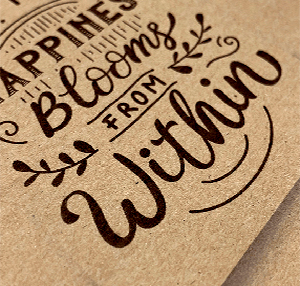 HAPPINESS
Blooms
FROM
Within